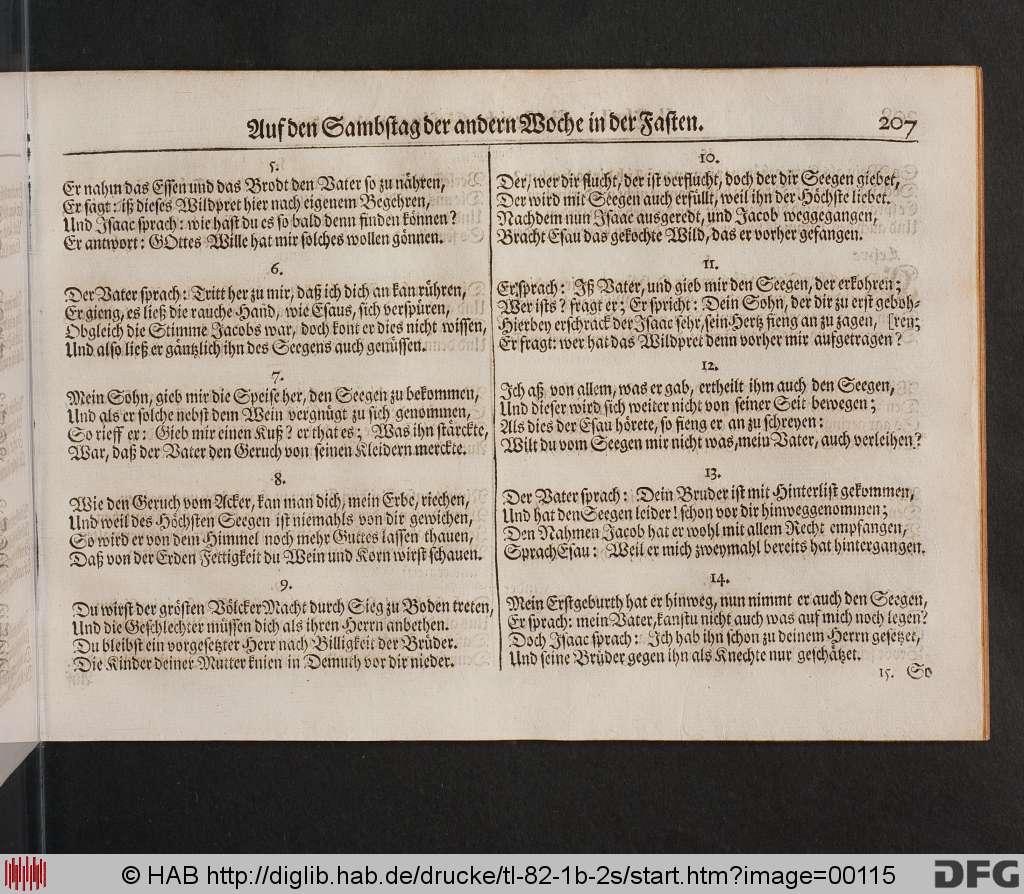 Auf den Sambstag der andern Woche in der Fasten.
207
5.
Er nahm das Essen und das Brodt den Vater so zu nähren,
Er sagt: iß dieses Wildpret hier nach eigenem Begehren,
Und Isaac sprach: wie hast du es so bald denn finden können?
Er antwort: GOttes Wille hat mir solches wollen gönnen.
6.
Der Vater sprach: Tritt her zu mir, daß ich dich an kan rühren,
Er gieng, es ließ die rauche Hand, wie Esaus, sich verspüren,
Obgleich die Stimme Jacobs war, doch kont er dies nicht wissen,
Und also ließ er gäntzlich ihn des Seegens auch genüssen.
7.
Mein Sohn, gieb mir die Speise her, den Seegen zu bekommen,
Und als er solche nebst dem Wein vergnügt zu sich genommen,
So rieff er: Gieb mir einen Kuß? er that es; Was ihn stärckte,
War, daß der Vater den Geruch von seinen Kleidern merckte.
8.
Wie den Geruch vom Acker, kan man dich, mein Erbe, riechen,
Und weil des Höchsten Seegen ist niemahls von dir gewichen,
So wird er von dem Himmel noch mehr Guttes lassen thauen,
Daß von der Erden Fettigkeit du Wein und Korn wirst schauen.
9.
Du wirst der grösten Völcker Macht durch Sieg zu Boden treten,
Und die Geschlechter müssen dich als ihren Herrn anbethen.
Du bleibst ein vorgesetzter Herr nach Billigkeit der Brüder.
Die Kinder deiner Mutter knien in Demuth vor dir nieder.
10.
Der, wer dir flucht, der ist verflucht, doch der dir Seegen giebet,
Der wird mit Seegen auch erfüllt, weil ihn der Höchste liebet.
Nachdem nun Isaac ausgeredt, und Jacob weggegangen,
Bracht Esau das gekochte Wild, das er vorher gefangen.
11.
Er sprach: Iß Vater, und gieb mir den Seegen, der erkohren;
Wer ists? fragt er; Er spricht: Dein Sohn, der dir zu erst geboh-
Hierbey erschrack der Isaac sehr, sein Hertz fieng an zu zagen, [ren;
Er fragt: wer hat das Wildpret denn vorher mir aufgetragen?
12.
Ich aß von allem, was er gab, ertheilt ihm auch den Seegen,
Und dieser wird sich weiter nicht von seiner Seit bewegen;
Als dies der Esau hörete, so fieng er an zu schreyen:
Wilt du vom Seegen mir nicht was, mein Vater, auch verleihen?
13.
Der Vater sprach: Dein Bruder ist mit Hinterlist gekommen,
Und hat den Seegen leider! schon vor dir hinweggenommen;
Den Nahmen Jacob hat er wohl mit allem Recht empfangen,
Sprach Esau: Weil er mich zweymahl bereits hat hintergangen.
14.
Mein Erstgeburth hat er hinweg, nun nimmt er auch den Seegen,
Er sprach: mein Vater, kanstu nicht auch was auf mich noch legen?
Doch Isaac sprach: Ich hab ihn schon zu deinem Herrn gesetzet,
Und seine Brüder gegen ihn als Knechte nur geschätzet.
15. So
© HAB http://diglib.hab.de/drucke/tl-82-1b-2s/start.htm?image=00115
DFG